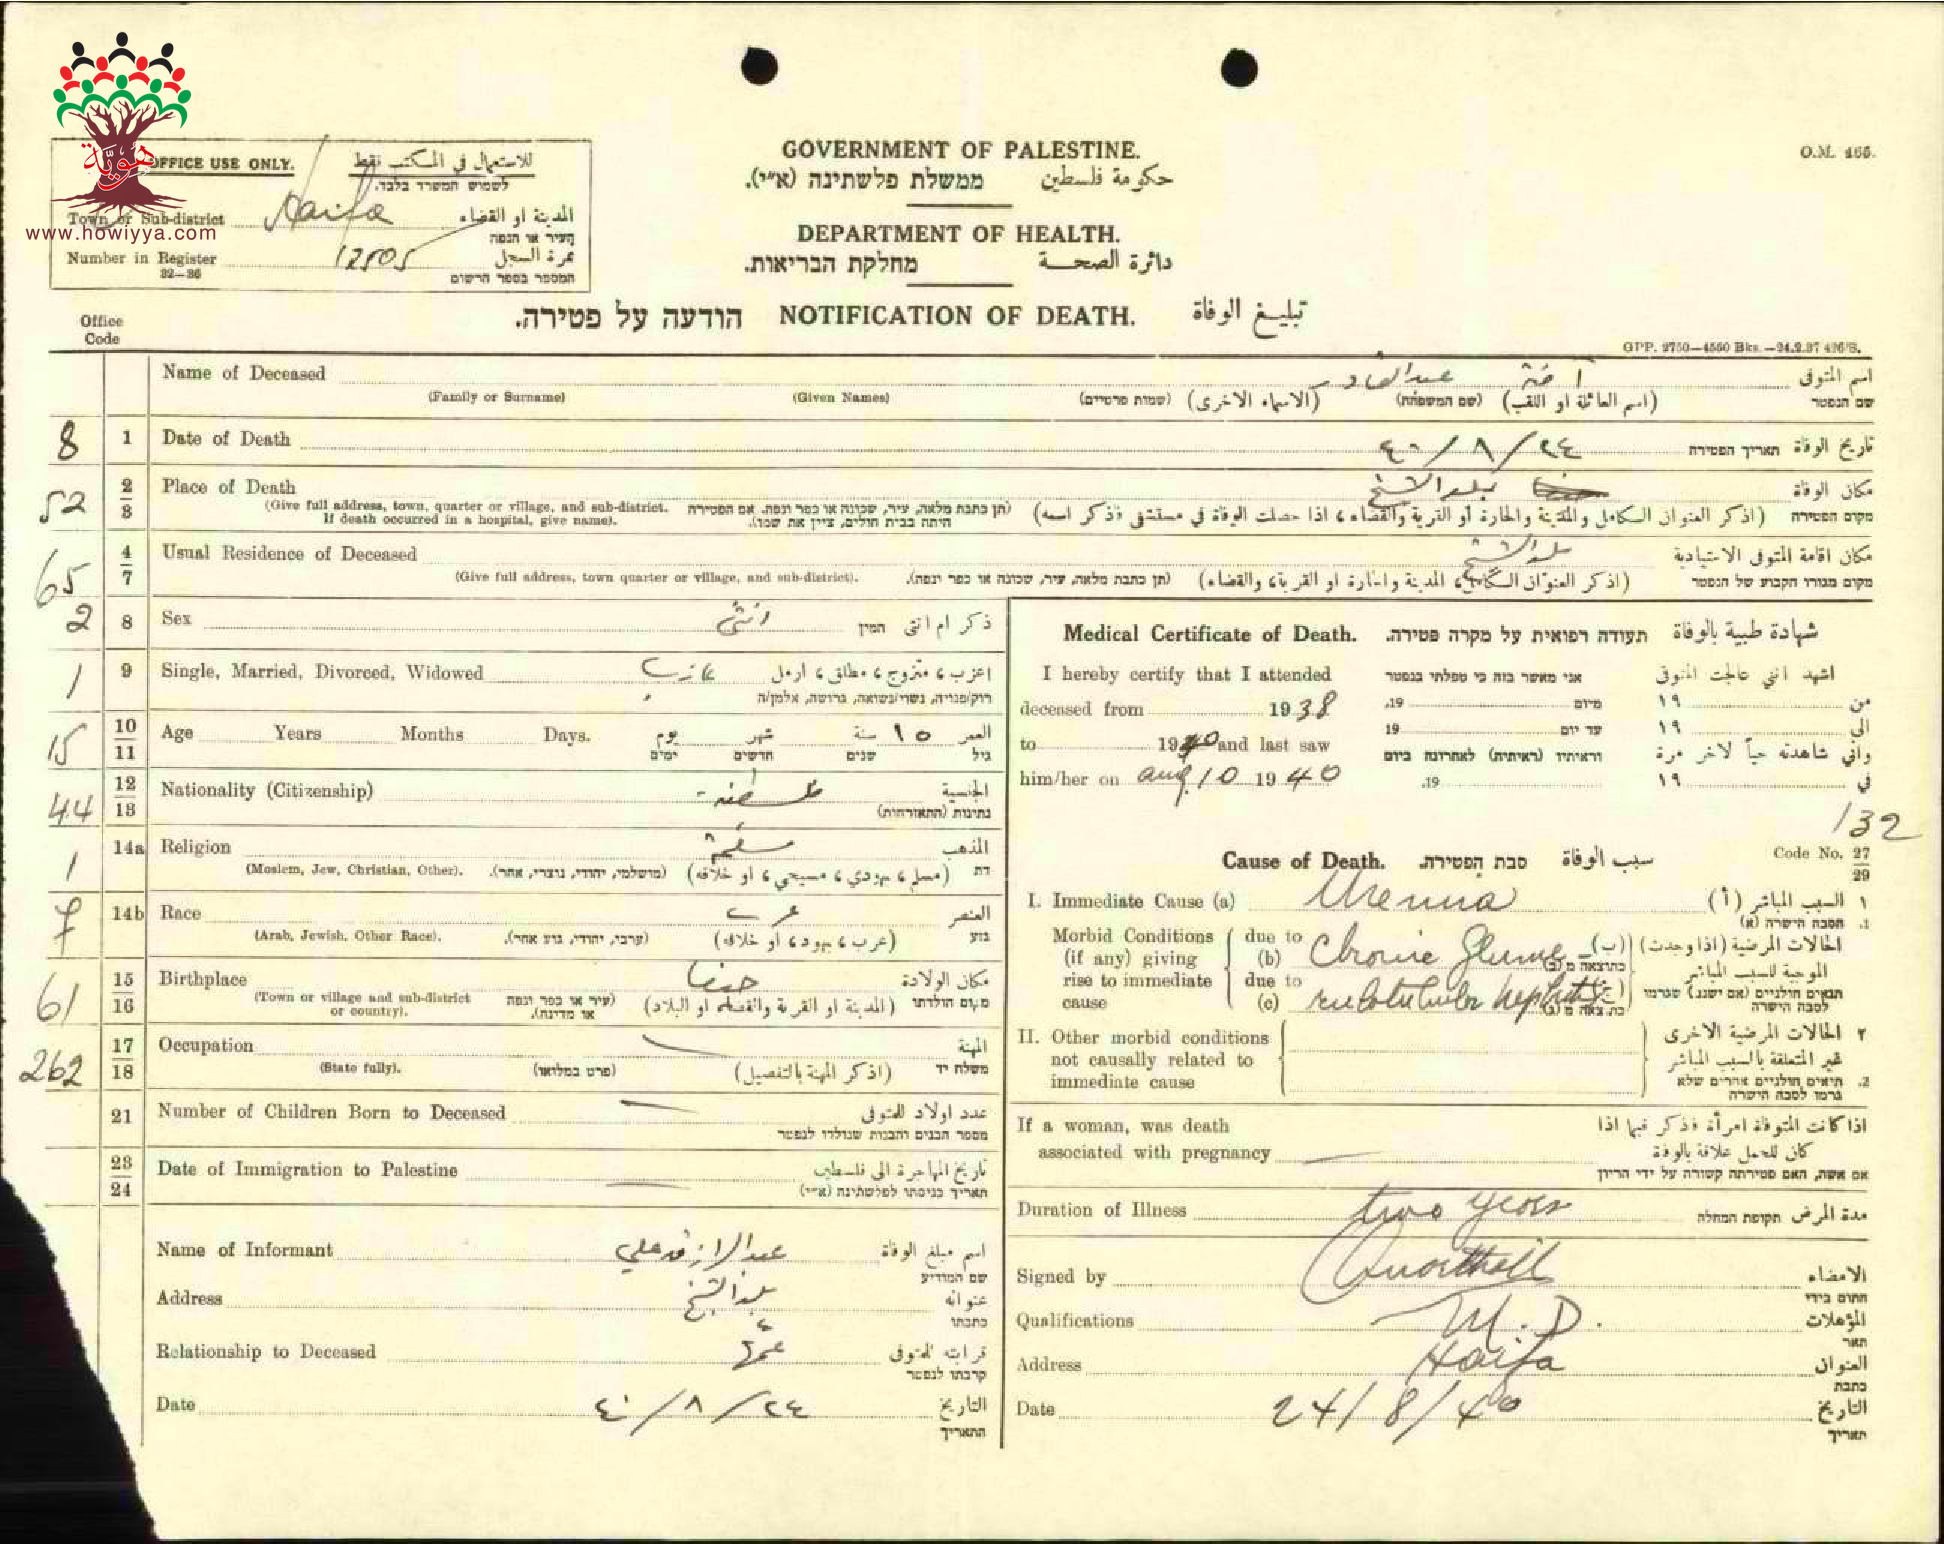 هوية
www.howiyya.com
OFFICE USE ONLY. للاستعمال في المكتب فقط
לשמוש המשרד בלבד.
Town or Sub-district Haifa المدينة او القضاء
העיר או הנפה
Number in Register 12505 نمرة السجل
32—36 המספר בספר הרשום
GOVERNMENT OF PALESTINE.
ממשלת פלשתינה (א״י). حكومة فلسطين
DEPARTMENT OF HEALTH.
מחלקת הבריאות. دائرة الصحة
O.M. 165.
הודעה על פטירה. NOTIFICATION OF DEATH. تبليغ الوفاة
Office Code
GPP. 2750—4550 Bks.—24.2.37 426/S.
Name of Deceased آمنة عبدالقادر اسم المتوفى
(Family or Surname) (Given Names) (שמות פרטיים) (الاسماء الاخرى) (שם המשפחה) (اسم العائلة او اللقب) שם הנפטר
8 1 Date of Death ٢٤/٨/٤٠ תאריך הפטירה تاريخ الوفاة
52 2/3 Place of Death بلد الشيخ مكان الوفاة
(Give full address, town, quarter or village, and sub-district. If death occurred in a hospital, give name). (תן כתבת מלאה, עיר, שכונה או כפר ונפה. אם הפטירה היתה בבית חולים, ציין את שמו). (اذكر العنوان الكامل والمدينة والحارة او القرية والقضاء ، اذا حصلت الوفاة في مستشفى فذكر اسمه) מקום הפטירה
65 4/7 Usual Residence of Deceased بلد الشيخ مكان اقامة المتوفى الاعتيادية
(Give full address, town quarter or village, and sub-district). (תן כתבת מלאה, עיר, שכונה או כפר ונפה). (اذكر العنوان الكامل، المدينة والحارة او القرية، والقضاء) מקום מגורו הקבוע של הנפטר
2 8 Sex انثى המין ذكر ام انثى
1 9 Single, Married, Divorced, Widowed عازب اعزب ، متزوج ، مطلق ، ارمل
רוק/פנויה, נשוי/נשואה, גרושה, אלמן/ה
15 10/11 Age Years Months Days. يوم شهر ١٥ سنة العمر
ימים חדשים שנים גיל
44 12/13 Nationality (Citizenship) فلسطينية الجنسية
נתינות (התאזרחות)
1 14a Religion مسلمة المذهب
(Moslem, Jew, Christian, Other). (מושלמי, יהודי, נוצרי, אחר). (مسلم ، يهودي ، مسيحي ، او خلافه) דת
7 14b Race عرب العنصر
(Arab, Jewish, Other Race). (ערבי, יהודי, גזע אחר). (عرب ، يهود ، او خلافه) גזע
61 15/16 Birthplace حيفا مكان الولادة
(Town or village and sub-district or country). (עיר או כפר ונפה או מדינה). (المدينة او القرية والقضاء او البلاد) מקום הולדתו
262 17/18 Occupation المهنة
(State fully). (פרט במלואו) (اذكر المهنة بالتفصيل) משלח יד
21 Number of Children Born to Deceased عدد اولاد المتوفى
מספר הבנים והבנות שנולדו לנפטר
23/24 Date of Immigration to Palestine تاريخ المهاجرة الى فلسطين
תאריך כניסתו לפלשתינה (א״י)
Name of Informant عبدالرازق علي اسم مبلغ الوفاة
שם המודיע
Address بلد الشيخ عنوانه
כתבתו
Relationship to Deceased عمها قرابته للمتوفى
קרבתו לנפטר
Date ٢٤/٨/٤٠ التاريخ
התאריך
Medical Certificate of Death. תעודה רפואית על מקרה פטירה. شهادة طبية بالوفاة
I hereby certify that I attended אני מאשר בזה כי טפלתי בנפטר اشهد انني عالجت المتوفى
deceased from 1938 מיום 19. من ١٩
to 1940 and last saw עד יום 19 الى ١٩
וראיתיו (ראיתיה) לאחרונה ביום واني شاهدته حياً لاخر مرة
him/her on aug 10 1940 19. في ١٩
132
Cause of Death. סבת הפטירה. سبب الوفاة Code No. 27/29
I. Immediate Cause (a) Uremia ١ السبب المباشر (أ)
1. הסבה הישרה (א)
Morbid Conditions (if any) giving rise to immediate cause
due to (b) Chronic Glome- (ب) الحالات المرضية (اذا وجدت)
due to (c) rulotubular nephritis الموجبة للسبب المباشر
תנאים חולניים (אם ישנם) שגרמו לסבה הישרה
II. Other morbid conditions not causally related to immediate cause ٢ الحالات المرضية الاخرى
غير المتعلقة بالسبب المباشر
2. תנאים חולניים אחרים שלא גרמו לסבה הישרה
If a woman, was death associated with pregnancy اذا كانت المتوفاة امرأة فذكر فيما اذا
كان للحمل علاقة بالوفاة
אם אשה, האם פטירתה קשורה על ידי הריון
Duration of Illness two years תקופת המחלה مدة المرض
Signed by الامضاء
חתום בידי
Qualifications M.D. المؤهلات
תאר
Address Haifa العنوان
כתבת
Date 24/8/40 التاريخ
תאריך